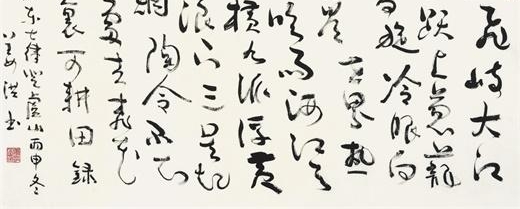 飞峙大江
跃上葱茏
百旋冷眼向
世界热
吹雨洒江
横九派浮黄
浪下三吴起
烟陶令不知
处去桃花
裏可耕田録
东七律登庐山丙申冬
洪书